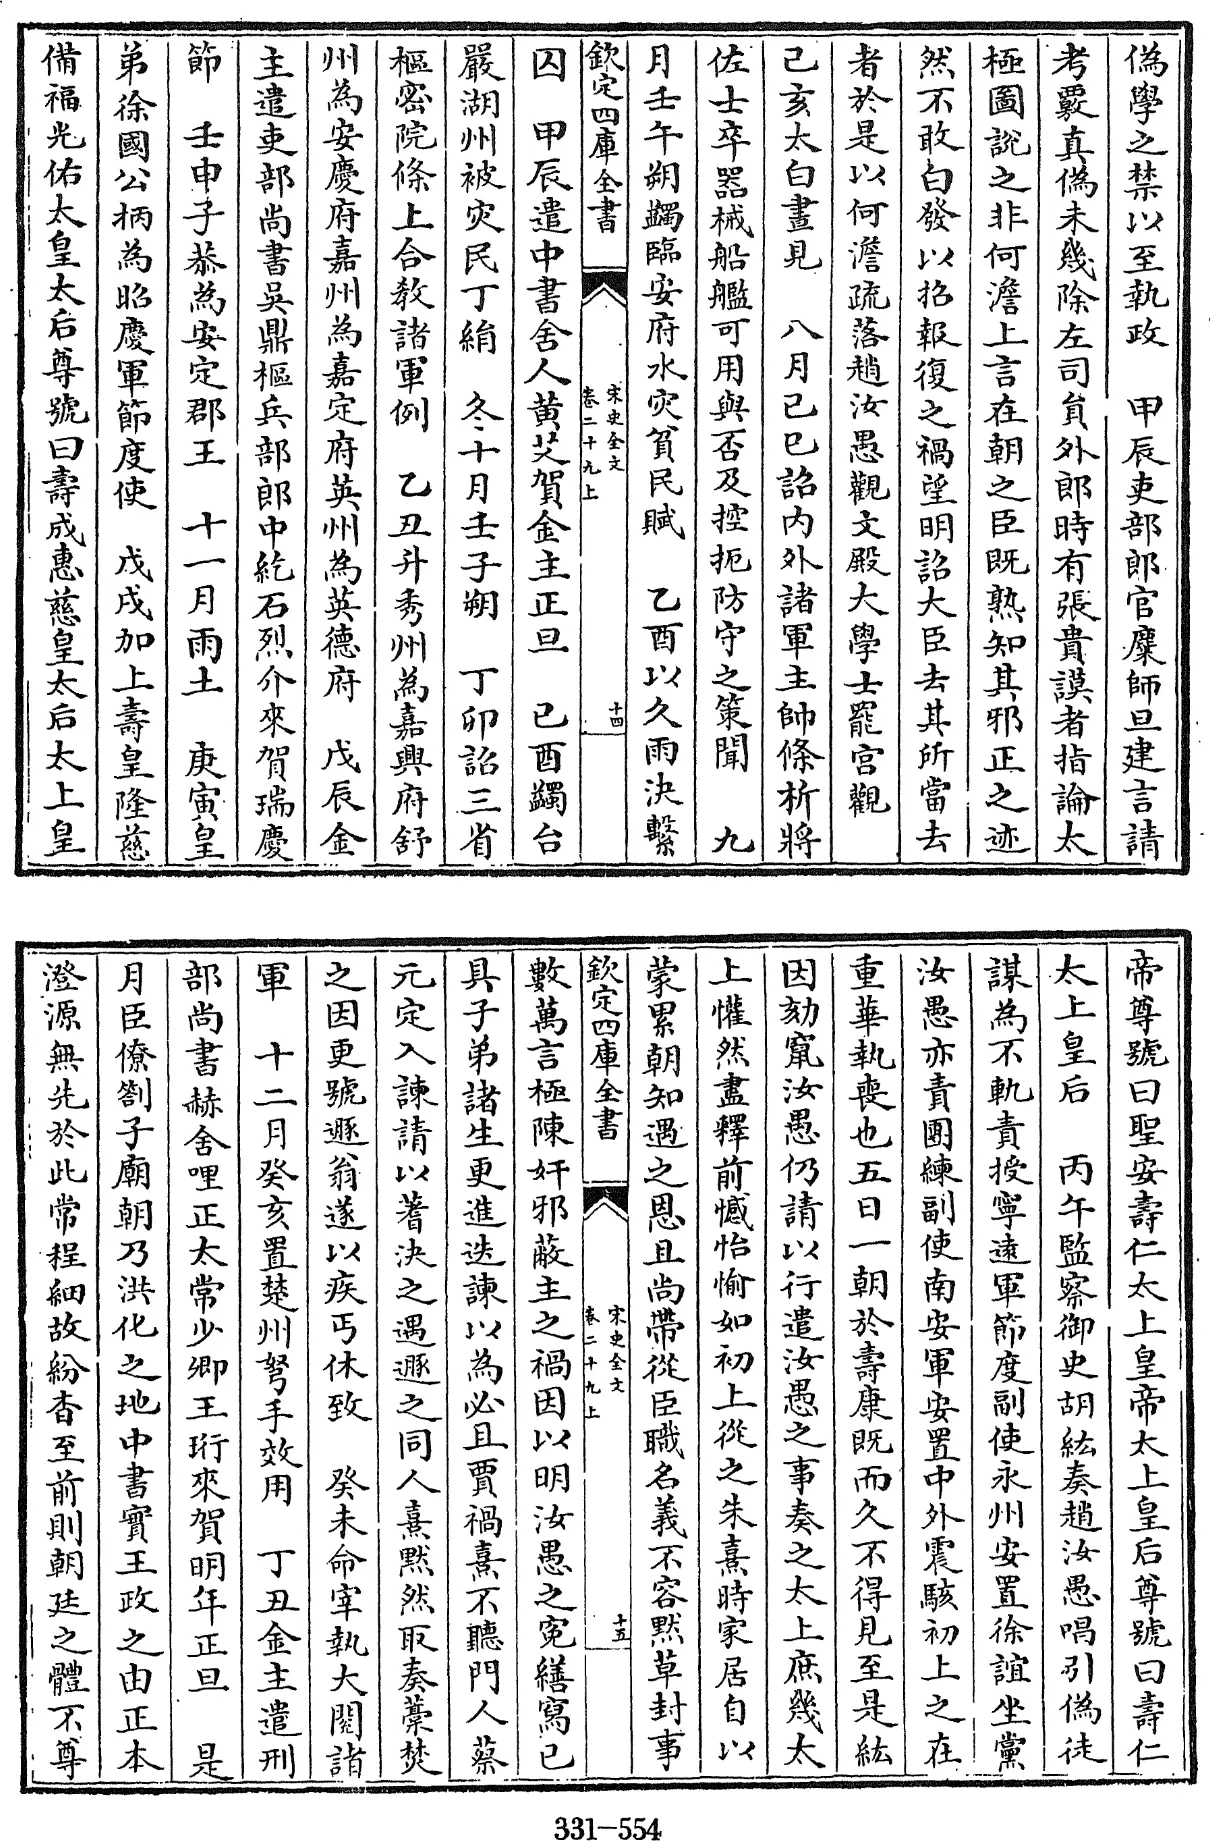 偽學之禁以至執政　甲辰吏部郎官糜師旦建言請
考覈真偽未幾除左司貟外郎時有張貴謨者指論太
極圖說之非何澹上言在朝之臣既熟知其邪正之迹
然不敢白發以招報復之禍望明詔大臣去其所當去
者於是以何澹疏落趙汝愚觀文殿大學士罷宫觀
己亥太白晝見　八月己巳詔内外諸軍主帥條析將
佐士卒器械船艦可用與否及控扼防守之策聞　九
月壬午朔蠲臨安府水灾貧民賦　乙酉以久雨決繫
欽定四庫全書
宋史全文
卷二十九上
十四
囚　甲辰遣中書舍人黄艾賀金主正旦　已酉蠲台
嚴湖州被灾民丁絹　冬十月壬子朔　丁卯詔三省
樞密院條上合教諸軍例　乙丑升秀州為嘉興府舒
州為安慶府嘉州為嘉定府英州為英德府　戊辰金
主遣吏部尚書吳鼎樞兵部郎中紇石烈介來賀瑞慶
節　壬申子恭為安定郡王　十一月雨土　庚寅皇
弟徐國公柄為昭慶軍節度使　戊戌加上壽皇隆慈
備福光佑太皇太后尊號曰壽成惠慈皇太后太上皇
帝尊號曰聖安壽仁太上皇帝太上皇后尊號曰壽仁
太上皇后　丙午監察御史胡紘奏趙汝愚唱引偽徒
謀為不軌責授寧遠軍節度副使永州安置徐誼坐黨
汝愚亦責團練副使南安軍安置中外震駭初上之在
重華執喪也五日一朝於壽康既而久不得見至是紘
因劾竄汝愚仍請以行遣汝愚之事奏之太上庶幾太
上懽然盡釋前憾怡愉如初上從之朱熹時家居自以
蒙累朝知遇之恩且尚帶從臣職名義不容黙草封事
欽定四庫全書
宋史全文
卷二十九上
十五
數萬言極陳奸邪蔽主之禍因以明汝愚之寃繕寫已
具子弟諸生更進迭諫以為必且賈禍熹不聽門人蔡
元定入諫請以蓍決之遇遯之同人熹黙然取奏藁焚
之因更號遯翁遂以疾丐休致　癸未命宰執大閱諸
軍　十二月癸亥置楚州弩手效用　丁丑金主遣刑
部尚書赫舍哩正太常少卿王珩來賀明年正旦　是
月臣僚劄子廟朝乃洪化之地中書實王政之由正本
澄源無先於此常程細故紛沓至前則朝廷之體不尊
331-554